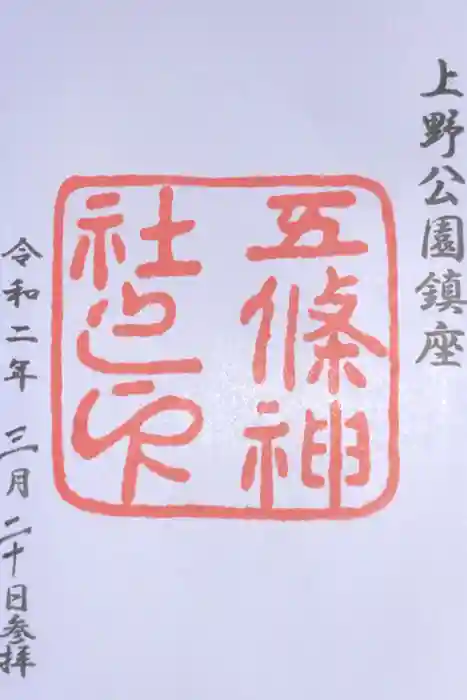 上野公園鎮座
五條神
社之印
令和二年 三月二十日参拝